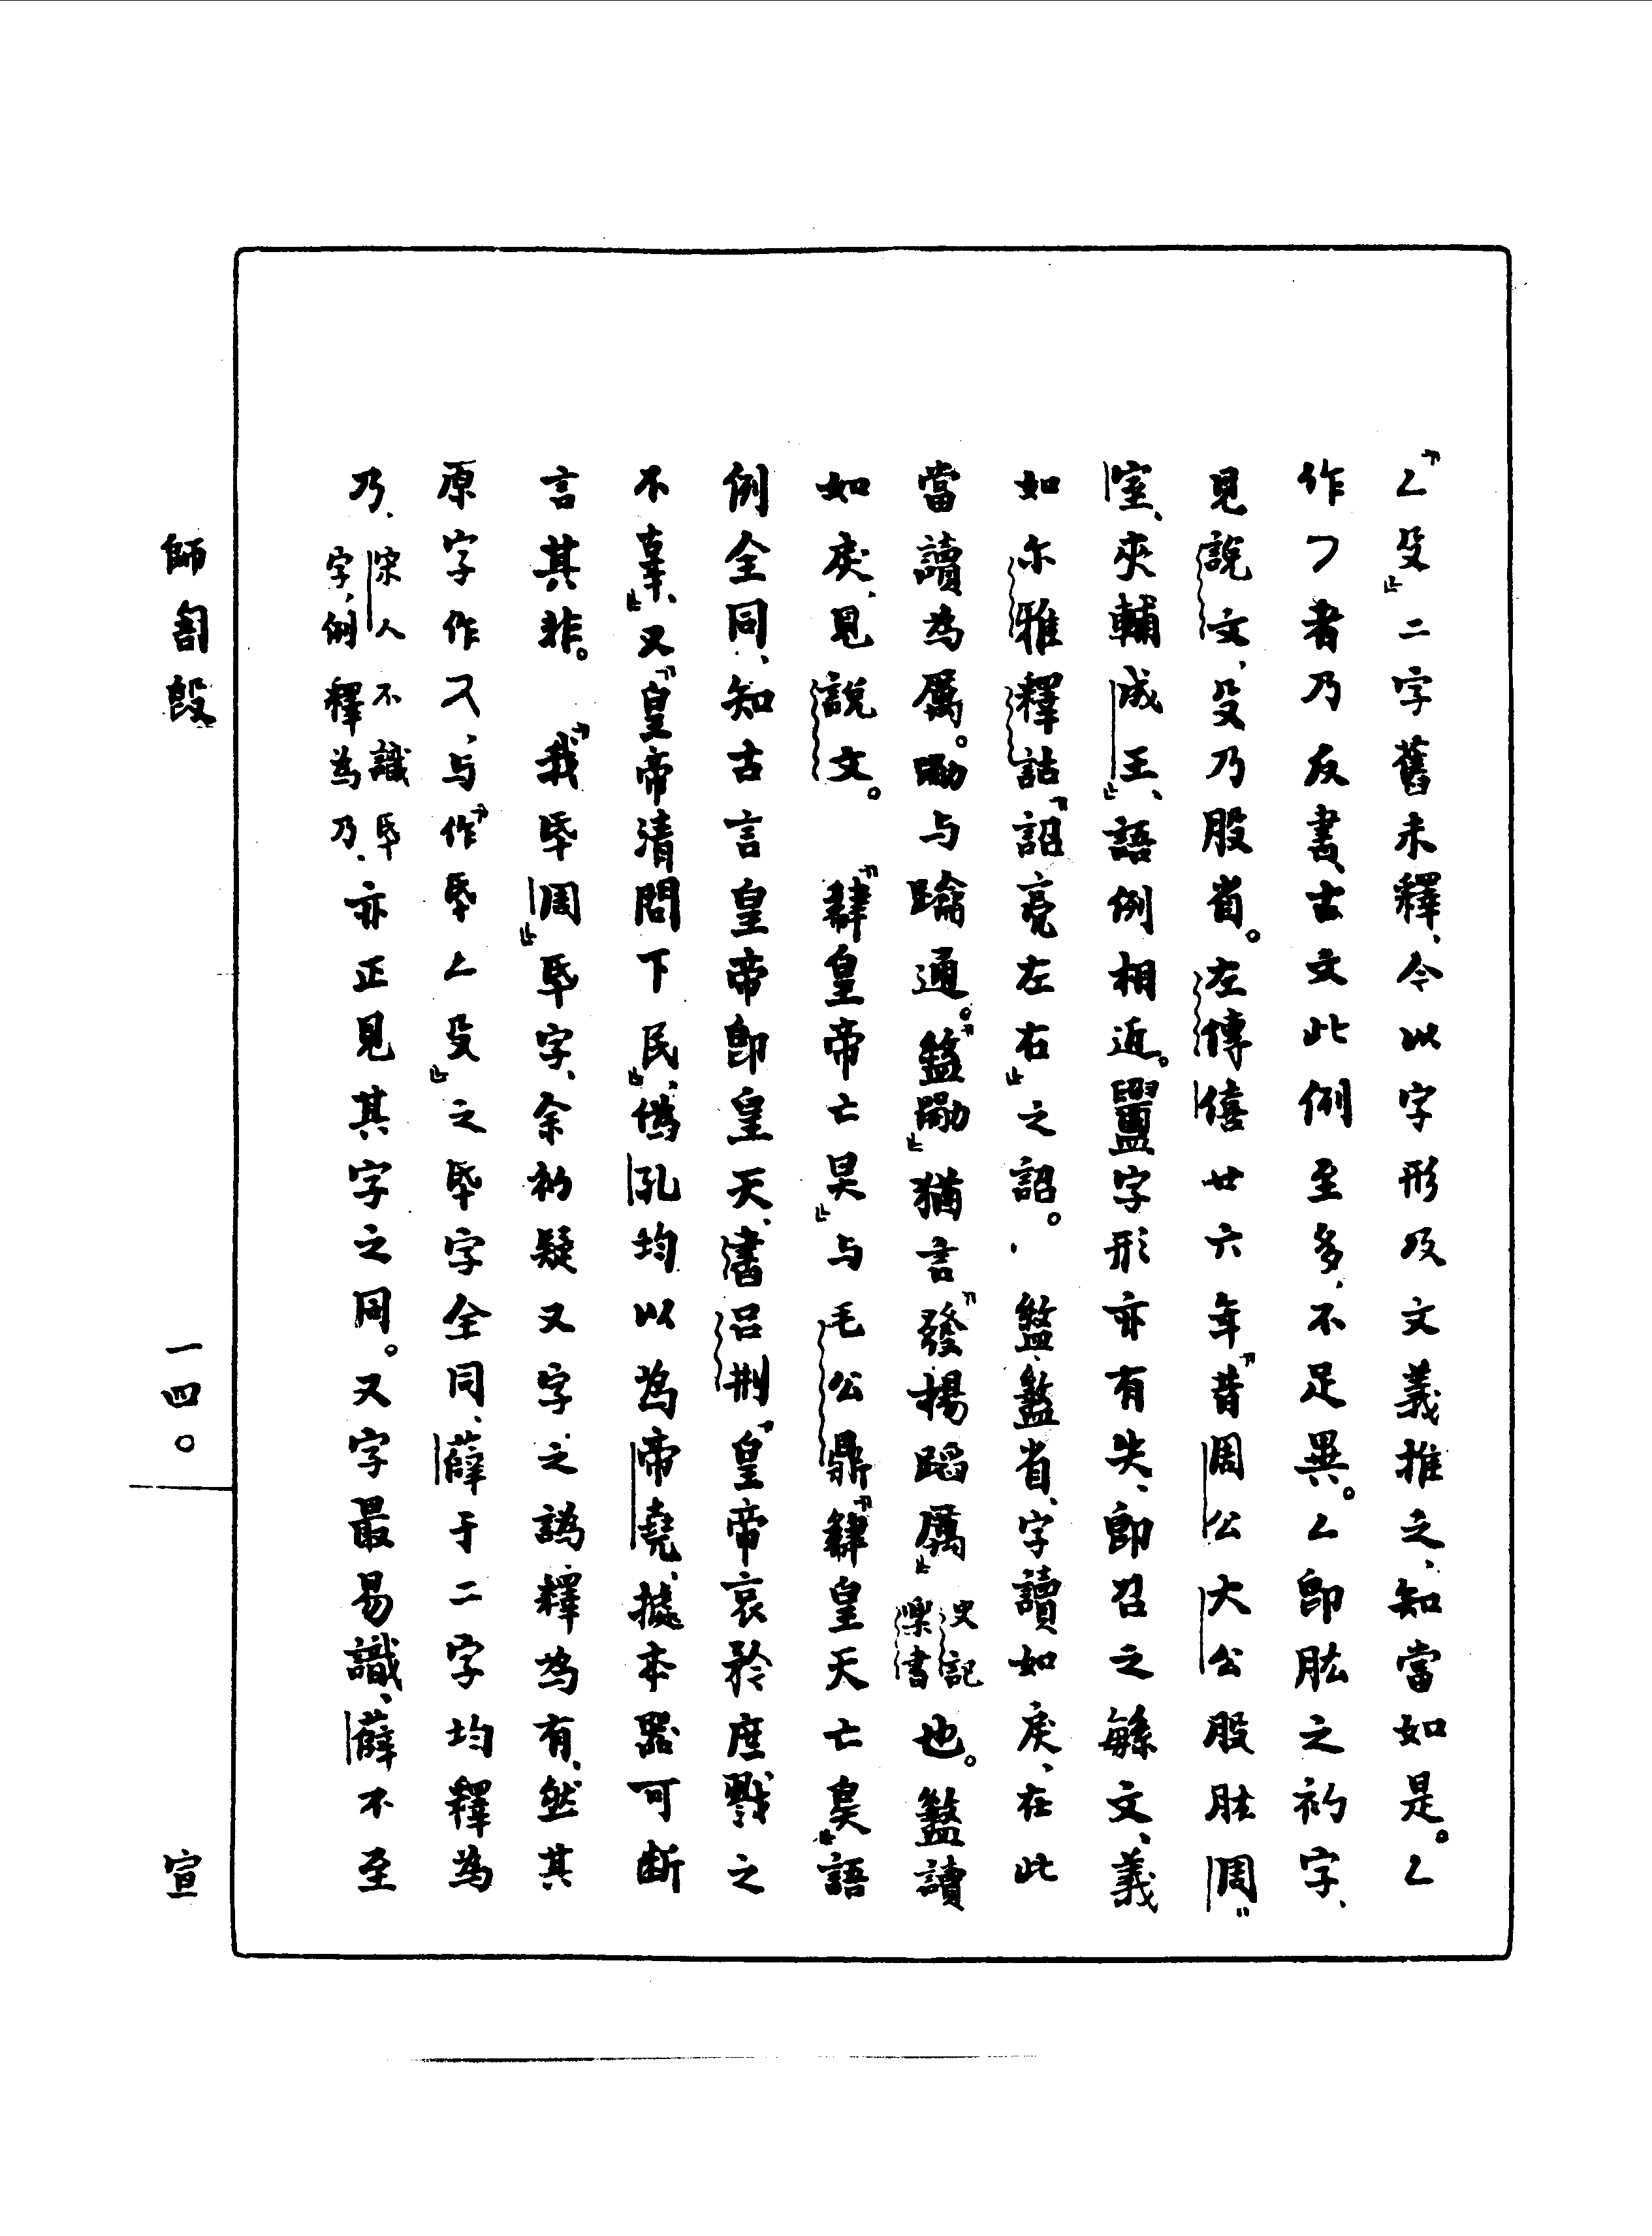 「𠃋殳」二字舊未釋、今以字形及文義推之、知當如是。𠃋
作㇇者乃反書、古文此例至多、不足異。𠃋即肱之初字、
見說文、殳乃股省。左傳僖廿六年「昔周公大公股肱周〃
室、夾輔成王」、語例相近。𥃝字形亦有失、即召之緐文、義
如尒雅釋詁「詔亮左右」之詔。盭、盭省、字讀如戾、在此
當讀為厲。勵与踰通。「盭勵」猶言「發揚蹈厲」史記樂書也。盭讀
如戾、見說文。 「肆皇帝亡昊」与毛公鼎「肆皇天亡昊」語
例全同、知古言皇帝即皇天、書呂刑「皇帝哀矜庶戮之
不辜」、又「皇帝清問下民」、偽孔均以為帝堯、據本器可断
言其非。 「我氒周」氒字、余初疑又字之譌釋為有、然其
原字作ㄟ、与「作氒𠃋殳」之氒字全同、薛于二字均釋為
乃、宋人不識氒字、例釋為乃、亦正見其字之同。又字最易識、薛不至
師訇𣪘
一四〇
宣